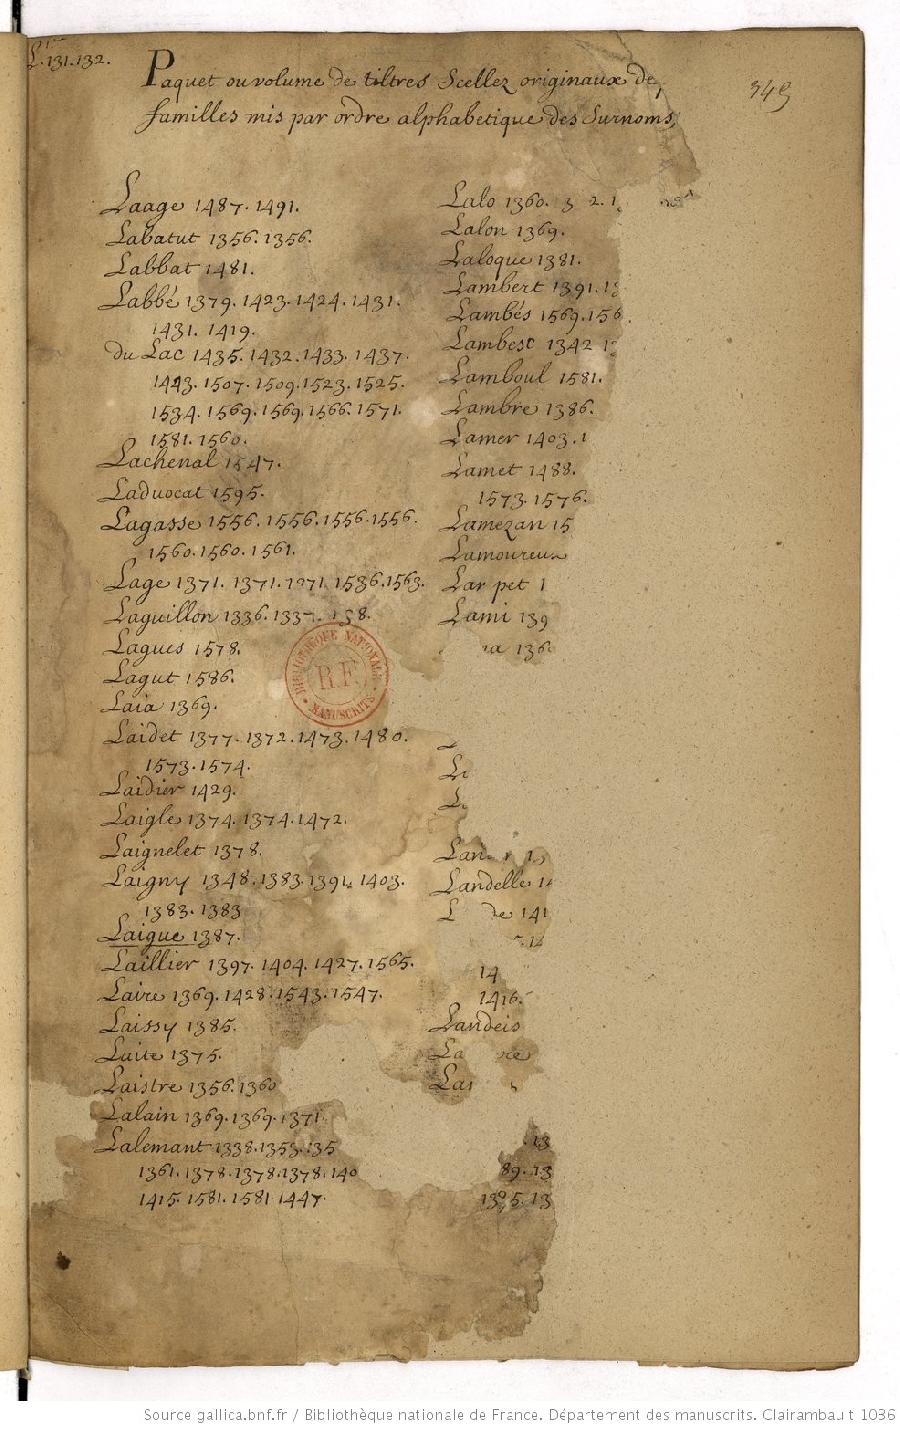 L. 131.132.
Paquet ou volume de tiltres Scellez originaux de
familles mis par ordre alphabetique des Surnoms
349
Laage 1487. 1491.
Labatut 1356. 1356.
Labbat 1481.
Labbé 1379. 1423. 1424. 1431.
1431. 1419.
du Lac 1435. 1432. 1433. 1437.
1443. 1507. 1509. 1523. 1525.
1534. 1569. 1569. 1566. 1571.
1581. 1560.
Lachenal 1547.
Laduocat 1595.
Lagasse 1556. 1556. 1556. 1556.
1560. 1560. 1561.
Lage 1371. 1371. 1371. 1536. 1563.
Laguillon 1336. 1337.
Lagues 1578.
Lagut 1586.
Laia 1369.
Laidet 1377. 1372. 1473. 1480.
1573. 1574.
Laidier 1429.
Laigle 1374. 1374. 1472.
Laignelet 1378.
Laigny 1348. 1383. 1391. 1403.
1383. 1383
Laigue 1387.
Laillier 1397. 1404. 1427. 1565.
Laire 1369. 1428. 1543. 1547.
Laissy 1385.
Laite 1375.
Laistre 1356. 1360
Lalain 1369. 1369. 1371.
Lalemant 1338. 1353. 135
1361. 1378. 1378. 1378. 140
1415. 1581. 1581 1447.
Lalo 1360.
Lalon 1369.
Laloque 1381.
Lambert 1391. 13
Lambés 1569. 156
Lambesc 1342 13
Lamboul 1581.
Lambre 1386.
Lamer 1403. 1
Lamet 1488.
1573. 1576.
Lamezan 15
Lamoureux
Lar pet 1
Lami 139
136
Landelle 14
de 141
14
1416.
Landeis
La re
La
13
89. 13
5. 13
BIBLIOTHEQUE NATIONALE
R.F.
MANUSCRITS
Source gallica.bnf.fr / Bibliothèque nationale de France. Département des manuscrits. Clairambault 1036